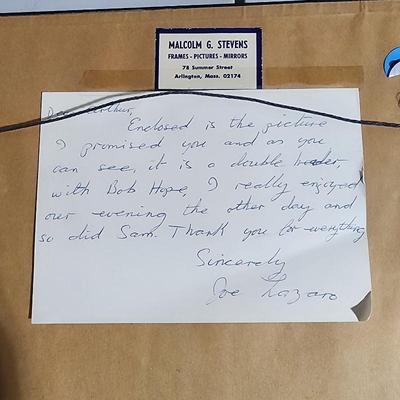 MALCOLM G. STEVENS
FRAMES - PICTURES - MIRRORS
78 Summer Street
Arlington, Mass. 02174
Dear Arthur,
Enclosed is the picture
I promised you and as you
can see, it is a double header,
with Bob Hope, I really enjoyed
our evening the other day and
so did Sam. Thank you for everything
Sincerely
Joe Lazaro